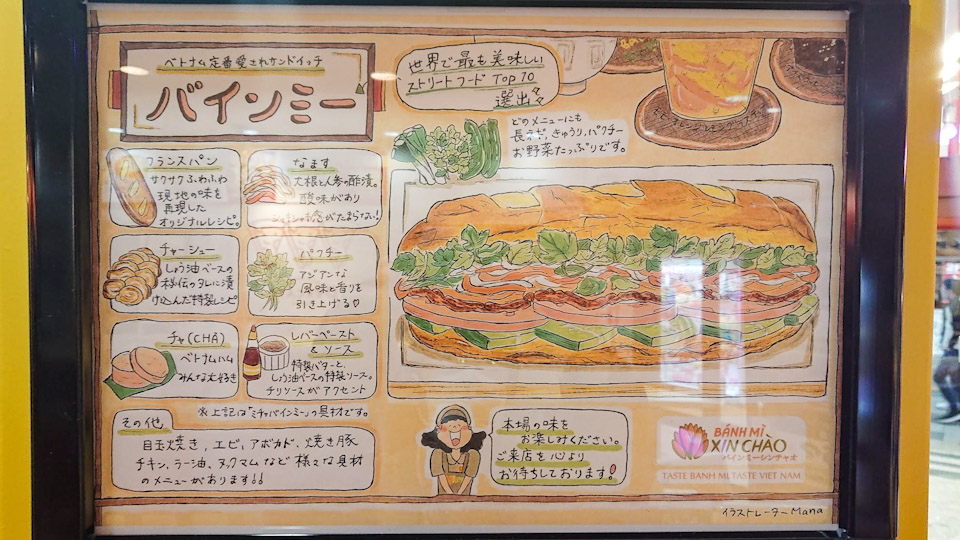 ベトナム定番愛されサンドイッチ
バインミー
世界で最も美味しい
ストリートフード TOP 10
選出
どのメニューにも
長ネギ、きゅうり、パクチー
お野菜たっぷりです。
フランスパン
サクサクふわふわ
現地の味を
再現した
オリジナルレシピ。
なます
大根と人参の酢漬。
酸味があり
がたまらない!
チャーシュー
しょう油ベースの
秘伝のタレに漬
け込んだ特製レシピ
パクチー
アジアンな
風味と香りを
引き上げる♡
チャ(CHẢ)
ベトナムハム
みんな大好き
レバーペースト
& ソース
特製バターと、
しょう油ベースの特製ソース。
チリソースがアクセント
※上記は「ミチャバインミー」の具材です。
その他
目玉焼き、エビ、アボカド、焼き豚
チキン、ラー油、ヌックマムなど様々な具材
のメニューがあります!!
本場の味を
お楽しみください。
ご来店を心より
お待ちしております!
BÁNH MÌ
XIN CHÀO
バインミーシンチャオ
TASTE BANH MI, TASTE VIET NAM
イラストレーター Mana